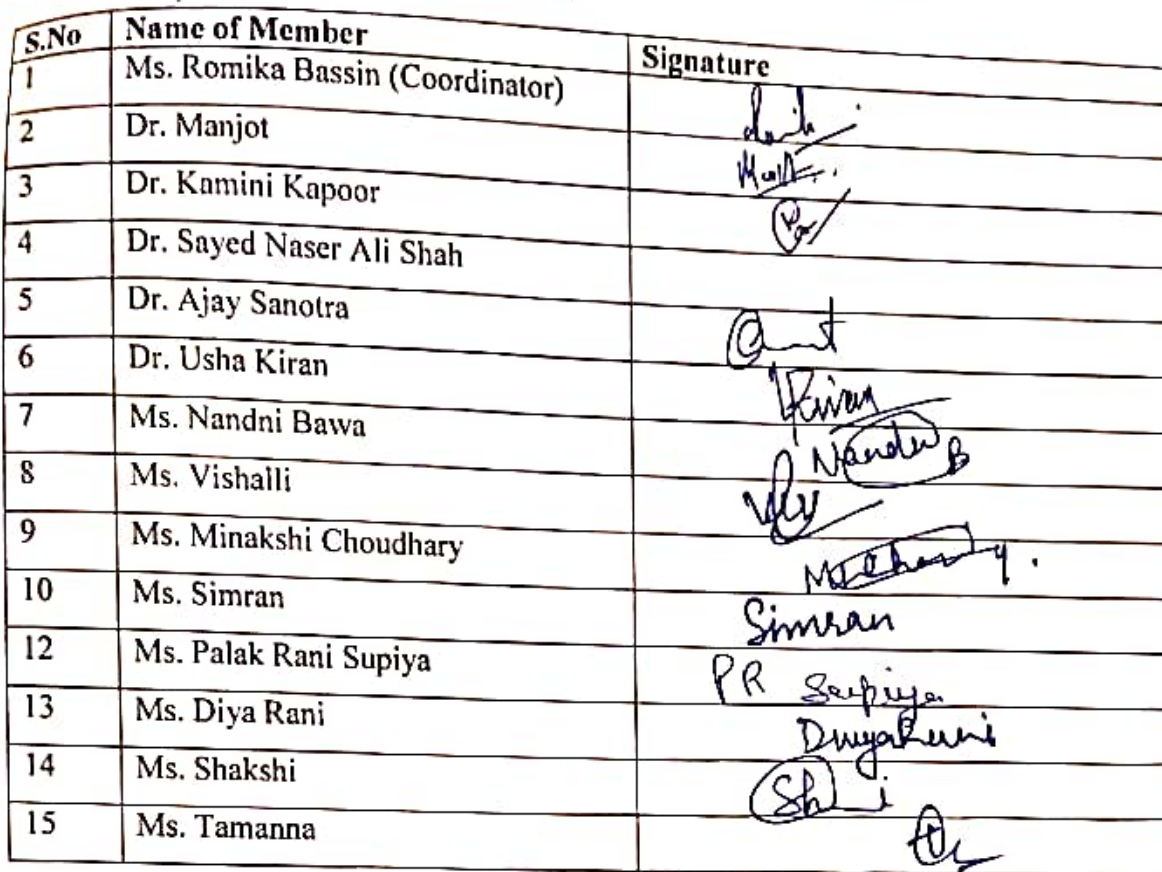 S.No Name of Member Signature
1 Ms. Romika Bassin (Coordinator)
2 Dr. Manjot
3 Dr. Kamini Kapoor
4 Dr. Sayed Naser Ali Shah
5 Dr. Ajay Sanotra
6 Dr. Usha Kiran Kiran
7 Ms. Nandni Bawa
8 Ms. Vishalli
9 Ms. Minakshi Choudhary
10 Ms. Simran Simran
12 Ms. Palak Rani Supiya PR Supiya
13 Ms. Diya Rani
14 Ms. Shakshi
15 Ms. Tamanna